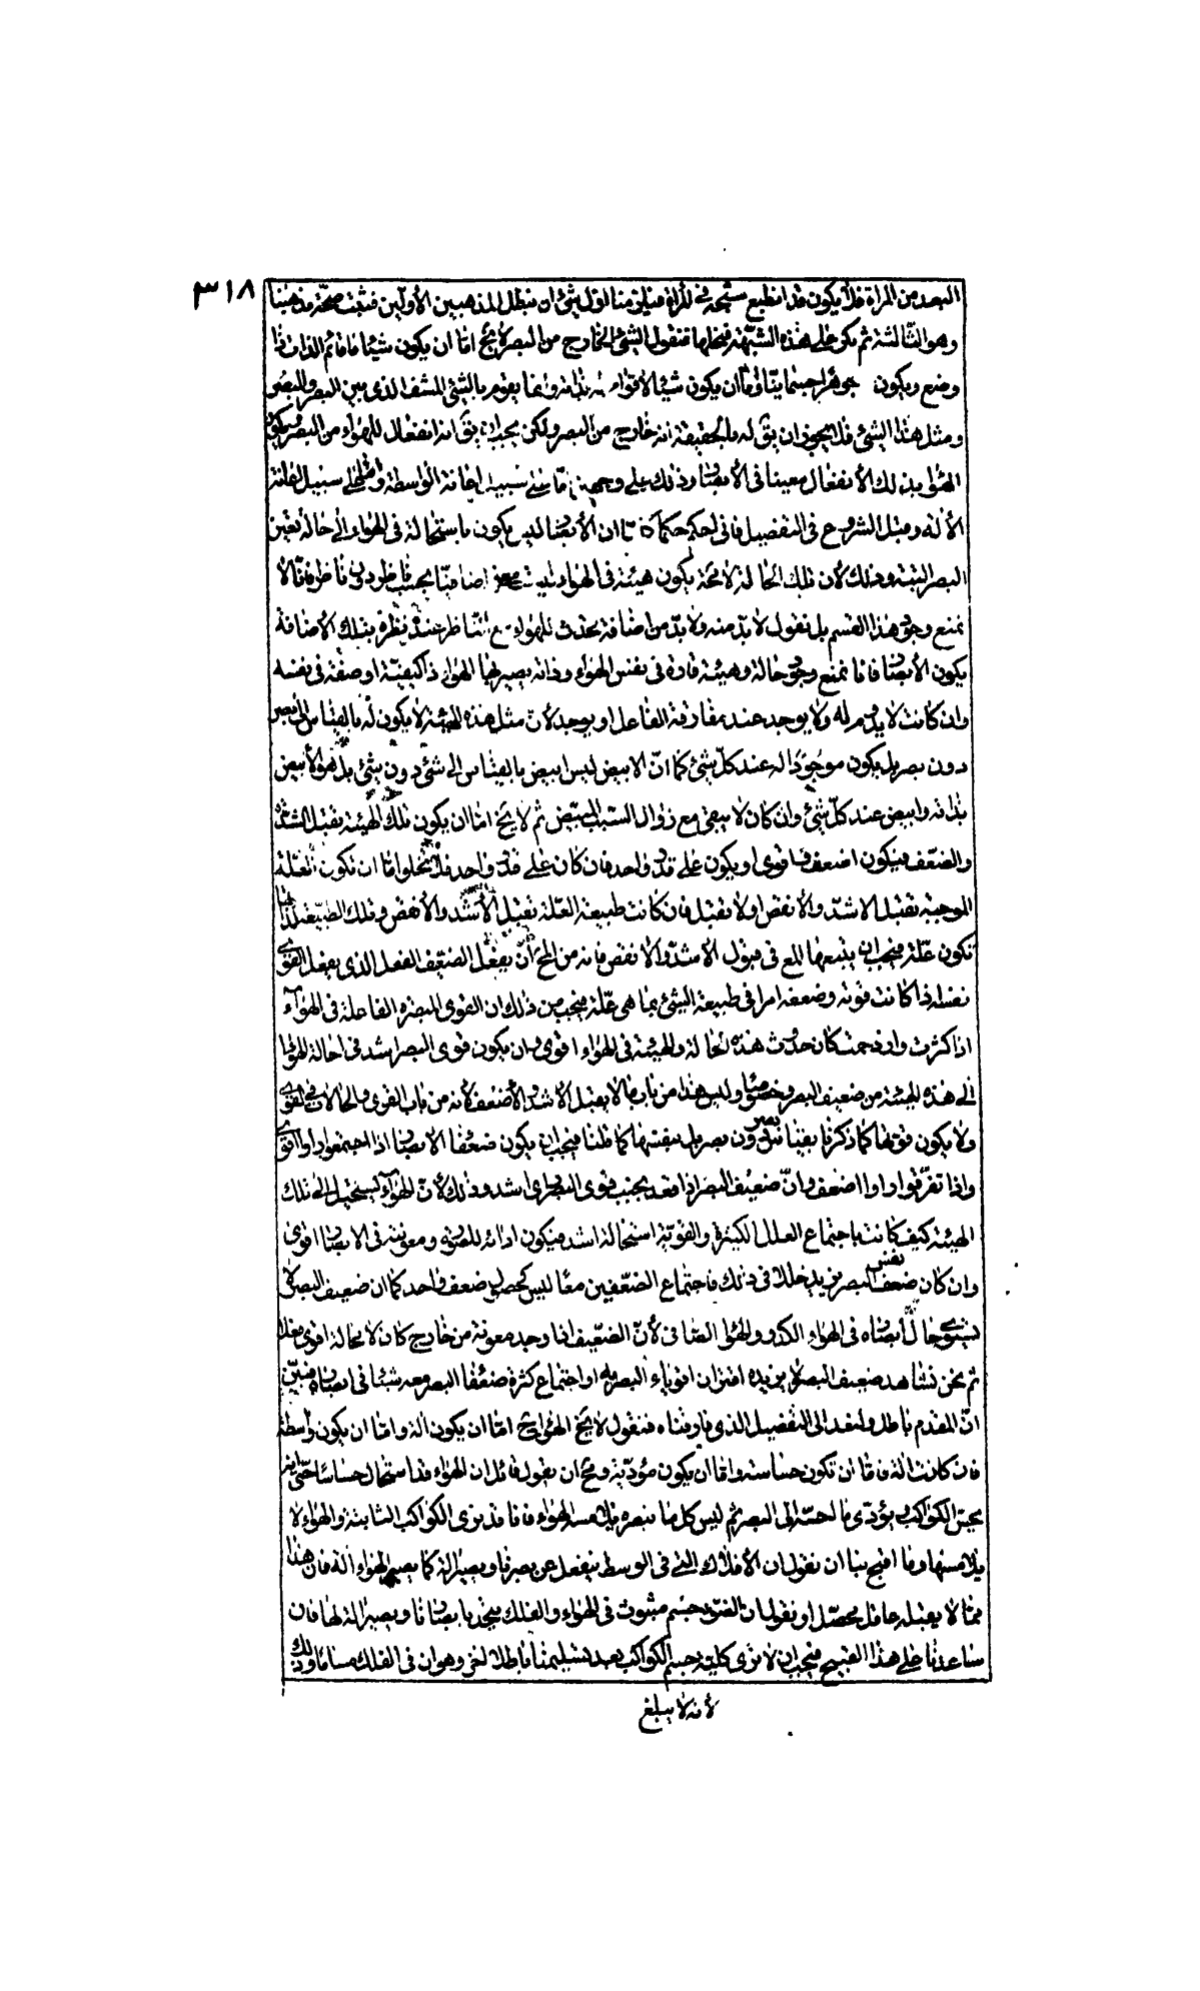 ٣١٨
البعد من المراة فلا يكون قد انطبع شبحه فى المراة فيلزمنا اول شئ ان نبطل المذهبين الأولين فنثبت صحّة مذهبنا
وهو الثالث ثم نكر على هذه الشبهة فنحلها فنقول الشئ الخارج من البصر لا يخ امّا ان يكون شيئا ما قائم الذات ذا
وضع ويكون جوهرا جسمانيّا وامّا ان يكون شيئا لا قوام له بذاته وانما يقوم بالشئ المشف الذى بين البصر والمبصر
ومثل هذا الشئ فلا يجوز ان يقَ له بالحقيقة انه خارج من البصر ولكن يجب ان يقَ انه انفعال للهواء من البصر ويكون
الهواء بذلك الأنفعال معينا فى الأبصار وذلك على وجهين امّا على سبيل اعانة الواسطة وامّا على سبيل اعانة
الألة وقبل الشروع فى التفصيل فانى احكم حكما كليّا ان الأبصار ليس يكون باستحالة فى الهواء الى حالة تعين
البصر البتة وذلك لأن تلك الحالة لا محة يكون هيئة فى الهواء ليست معنى اضافيّا بحسب ناظر دون ناظر فانّا لا
نمنع وجود هذا القسم بل نقول لا بدّ منه ولا بدّ من اضافة يحدث للهواء مع الناظر عند نظره بتلك الأضافة
يكون الأبصار فانا نمنع وجود حالة وهيئة قارة فى نفس الهواء وذاته يصير بها الهواء ذا كيفيّة او صفة فى نفسه
وان كانت لا يدوم له ولا يوجد عند مفارقة الفاعل او يوجد لأن مثل هذه الهيئة لا يكون له بالقياس الى بصر
دون بصر بل يكون موجودًا له عند كلّ شئ كما انّ الابيض ليس ابيض بالقياس الى شئ دون شئ بل هو الأبيض
بذاته وابيض عند كلّ شئ وان كان لا يبقى مع زوال السبب المبيّض ثم لا يخ امّا ان يكون تلك الهيئة تقبل الشدة
والضعف فيكون اضعف واقوى او يكون على قدر واحد فان كان على قدر واحد فلا يخلوا امّا ان تكون العلّة
الموجبة تقبل الاشدّ والأنقص او لا تقبل فان كانت طبيعة العلّة تقبل الأشد والأنقص وتلك الطبيعة لذاتها
تكون علّة فيجب ان يتبعها المع فى قبول الاشدّ والانقص فانه من المح ان يفعل الضعيف الفعل الذى يفعل القوى
نفسه اذا كانت قوته وضعفه امرا فى طبيعة الشئ بما هى علّة فيجب من ذلك ان القوى المبصره الفاعلة فى الهواء
اذا كثرت وازدحمت كان حدوث هذه الحالة والهيئة فى الهواء اقوى وان يكون قوى البصر اشد فى احالة الهواء
الى هذه الهيئة من ضعيف البصر وخصوصًا وليس هذا من باب ما لا يقبل الاشد والأضعف لأنه من باب القوى والحالات فى القوى
ولا يكون قوتها كما ذكرنا بقياس بصر دون بصر بل بنفسها كما قلنا فيجب ان يكون ضعفا الابصار اذا اجتمعوا راوا اقوى
واذا تفرقوا راوا اضعف وانّ ضعيف البصر اذا قعد بجنب قوى البصر راى اشد وذلك لأن الهواء يستحيل الى تلك
الهيئة كيف كانت باجتماع العلل الكثيرة والقويّة استحالة اشد فيكون ادائه للصورة ومعونته فى الابصار اقوى
وان كان ضعف نفس البصر يزيد خللا فى ذلك فاجتماع الضعفين معًا ليس كحصول ضعف واحد كما ان ضعيف البصر لا
يستوى حال ابصاره فى الهواء الكدر والهواء الصافى لأنّ الضعيف اذا وجد معونة من خارج كان لا محالة اقوى فعلا
ثم نحن نشاهد ضعيف البصر لا يزيده اقتران اقوياء البصر به او اجتماع كثرة ضعفا البصر معه شيئا فى ابصاره فبيّن
انّ المقدم باطل ولنعد الى التفصيل الذى فارقناه فنقول لا يخ الهواء ح امّا ان يكون الة وامّا ان يكون واسطة
فان كانت الة فامّا ان تكون حساسة وامّا ان يكون مؤديّة ومح ان يقول قائل ان الهواء قد استحال حساسا حتّى انه
يحسّ الكواكب ويؤدّى ما احسّه الى البصر ثم ليس كل ما نبصره يلامسه الهواء فانا قد نرى الكواكب الثابتة والهواء لا
يلامسها وما اقبح بنا ان نقول ان الأفلاك التى فى الوسط ينفعل عن بصرنا ويصير الة كما يصير الهواء الة فان هذا
ممّا لا يقبله عاقل محصّل او نقول ان الضوء جسم مبثوث فى الهواء والفلك يتحد بابصارنا ويصير الة لها فان
ساعدنا على هذا القبيح فيجب ان لا نرى كلية جسم الكواكب بعد تسليمنا باطلا اخر وهو ان فى الفلك مساما وذلك
لأنه لا يبلغ